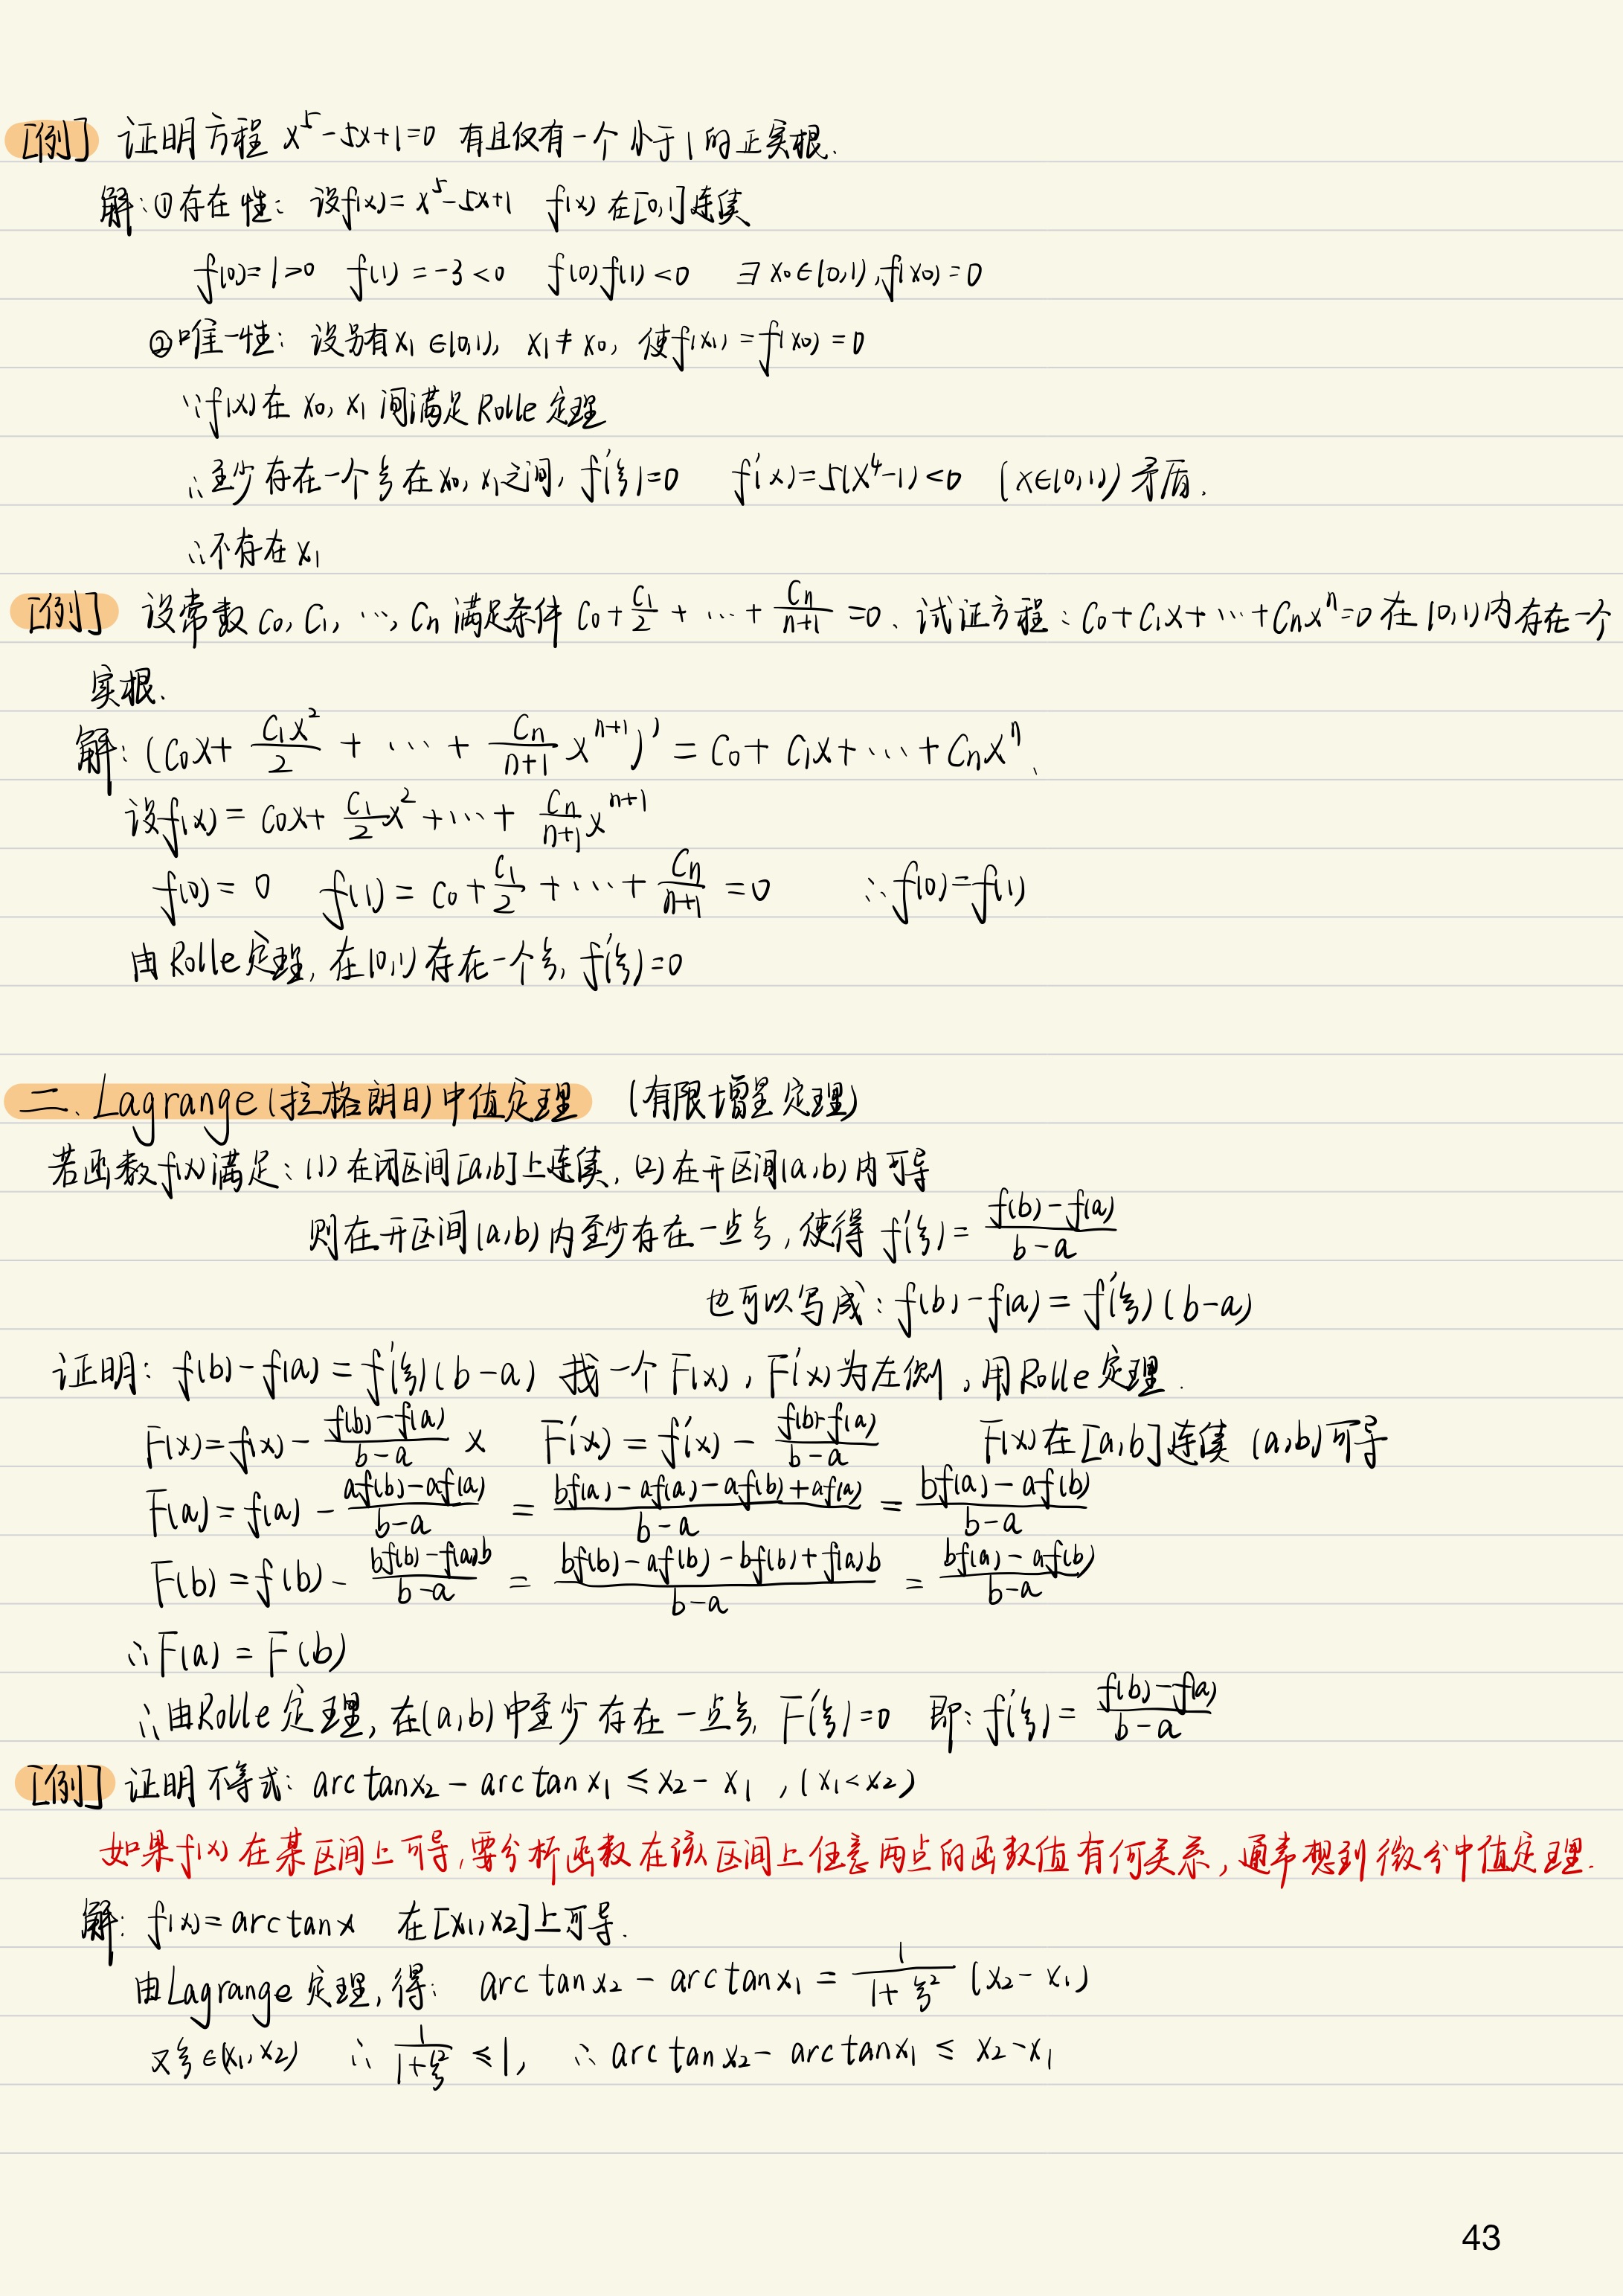 [例] 证明方程 x⁵-5x+1=0 有且仅有一个小于1的正实根.
解:①存在性: 设f(x)=x⁵-5x+1 f(x)在[0,1]连续
f(0)=1>0 f(1)=-3<0 f(0)f(1)<0 ∃x₀∈(0,1),f(x₀)=0
②唯一性: 设另有x₁∈(0,1), x₁≠x₀, 使f(x₁)=f(x₀)=0
∵f(x)在x₀, x₁间满足Rolle定理
∴至少存在一个ξ在x₀, x₁之间, f'(ξ)=0 f'(x)=5(x⁴-1)<0 (x∈(0,1)) 矛盾.
∴不存在x₁
[例] 设常数C₀, C₁, …, Cₙ满足条件C₀+C₁/2+…+Cₙ/(n+1)=0. 试证方程:C₀+C₁x+…+Cₙxⁿ=0在(0,1)内存在一个
实根.
解: (C₀x+C₁x²/2+…+Cₙ/(n+1) xⁿ⁺¹)'=C₀+C₁x+…+Cₙxⁿ.
设f(x)=C₀x+C₁/2 x²+…+Cₙ/(n+1) xⁿ⁺¹
f(0)=0 f(1)=C₀+C₁/2+…+Cₙ/(n+1)=0 ∴f(0)=f(1)
由Rolle定理, 在(0,1)存在一个ξ, f'(ξ)=0
二. Lagrange(拉格朗日)中值定理 (有限增量定理)
若函数f(x)满足:(1)在闭区间[a,b]上连续, (2)在开区间(a,b)内可导
则在开区间(a,b)内至少存在一点ξ, 使得 f'(ξ)=(f(b)-f(a))/(b-a)
也可以写成:f(b)-f(a)=f'(ξ)(b-a)
证明: f(b)-f(a)=f'(ξ)(b-a) 找一个F(x), F'(x)为左侧, 用Rolle定理.
F(x)=f(x)-(f(b)-f(a))/(b-a) x F'(x)=f'(x)-(f(b)-f(a))/(b-a) F(x)在[a,b]连续 (a,b)可导
F(a)=f(a)-(af(b)-af(a))/(b-a)=(bf(a)-af(a)-af(b)+af(a))/(b-a)=(bf(a)-af(b))/(b-a)
F(b)=f(b)-(bf(b)-f(a)b)/(b-a)=(bf(b)-af(b)-bf(b)+f(a)b)/(b-a)=(bf(a)-af(b))/(b-a)
∴F(a)=F(b)
∴由Rolle定理, 在(a,b)中至少存在一点ξ, F'(ξ)=0 即:f'(ξ)=(f(b)-f(a))/(b-a)
[例] 证明不等式: arctanx₂-arctanx₁≤x₂-x₁ , (x₁<x₂)
如果f(x)在某区间上可导,要分析函数在该区间上任意两点的函数值有何关系,通常想到微分中值定理.
解: f(x)=arctanx 在[x₁,x₂]上可导.
由Lagrange定理, 得: arctanx₂-arctanx₁=1/(1+ξ²) (x₂-x₁)
又ξ∈(x₁,x₂) ∴ 1/(1+ξ²)≤1, ∴arctanx₂-arctanx₁≤x₂-x₁
43